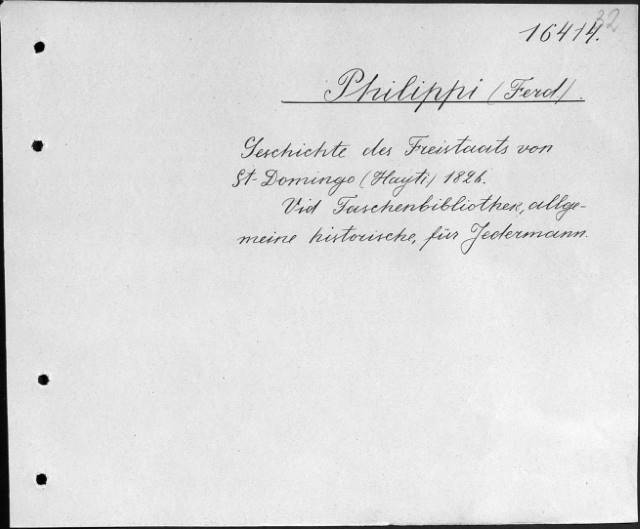 32
16414.
Philippi (Ferd).
Geschichte des Freistaats von
St. Domingo (Hayti) 1826.
Vid Taschenbibliothek, allge-
meine historische, für Jedermann.